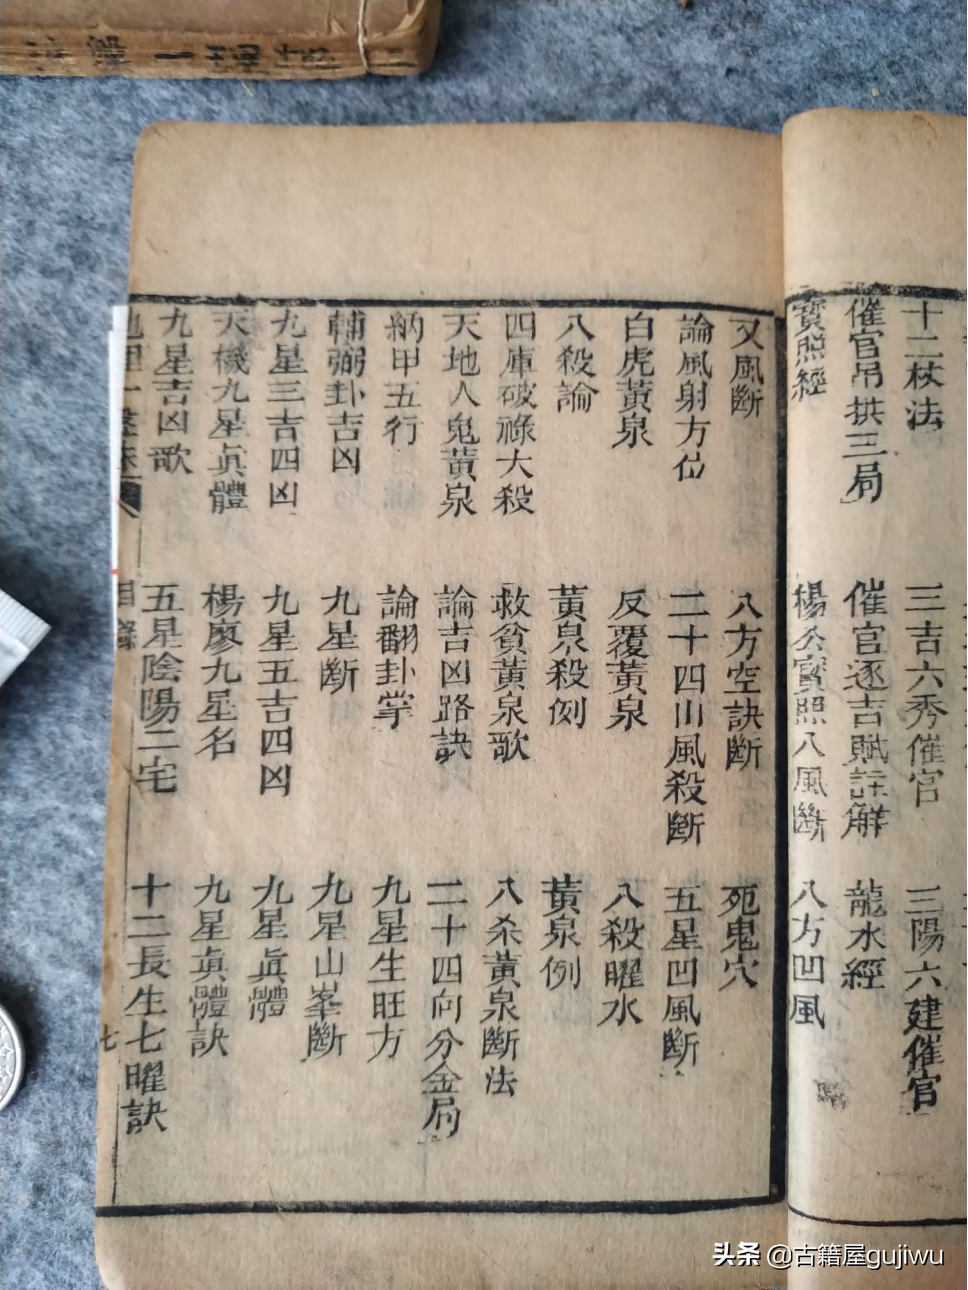 十二杖法
三吉六秀催官
三陽六建催官
催官吊拱三局
催官逐吉賦註解
龍水經
寶照經
楊公寶照八風斷
八方凹風
又風斷
八方空訣斷
死鬼穴
論風射方位
二十四山風殺斷
五星凹風斷
白虎黃泉
反覆黃泉
八殺曜水
八殺論
黃泉殺例
黃泉例
四庫破祿大殺
救貧黃泉歌
八杀黃泉斷法
天地人鬼黃泉
論吉凶路訣
二十四向分金局
納甲五行
論翻卦掌
九星生旺方
輔弼卦吉凶
九星斷
九星山峯斷
九星三吉四凶
九星五吉四凶
九星眞體
天機九星眞體
楊廖九星名
九星眞體訣
九星吉凶歌
五星陰陽二宅
十二長生七曜訣
目錄
七
头条 @古籍屋gujiwu